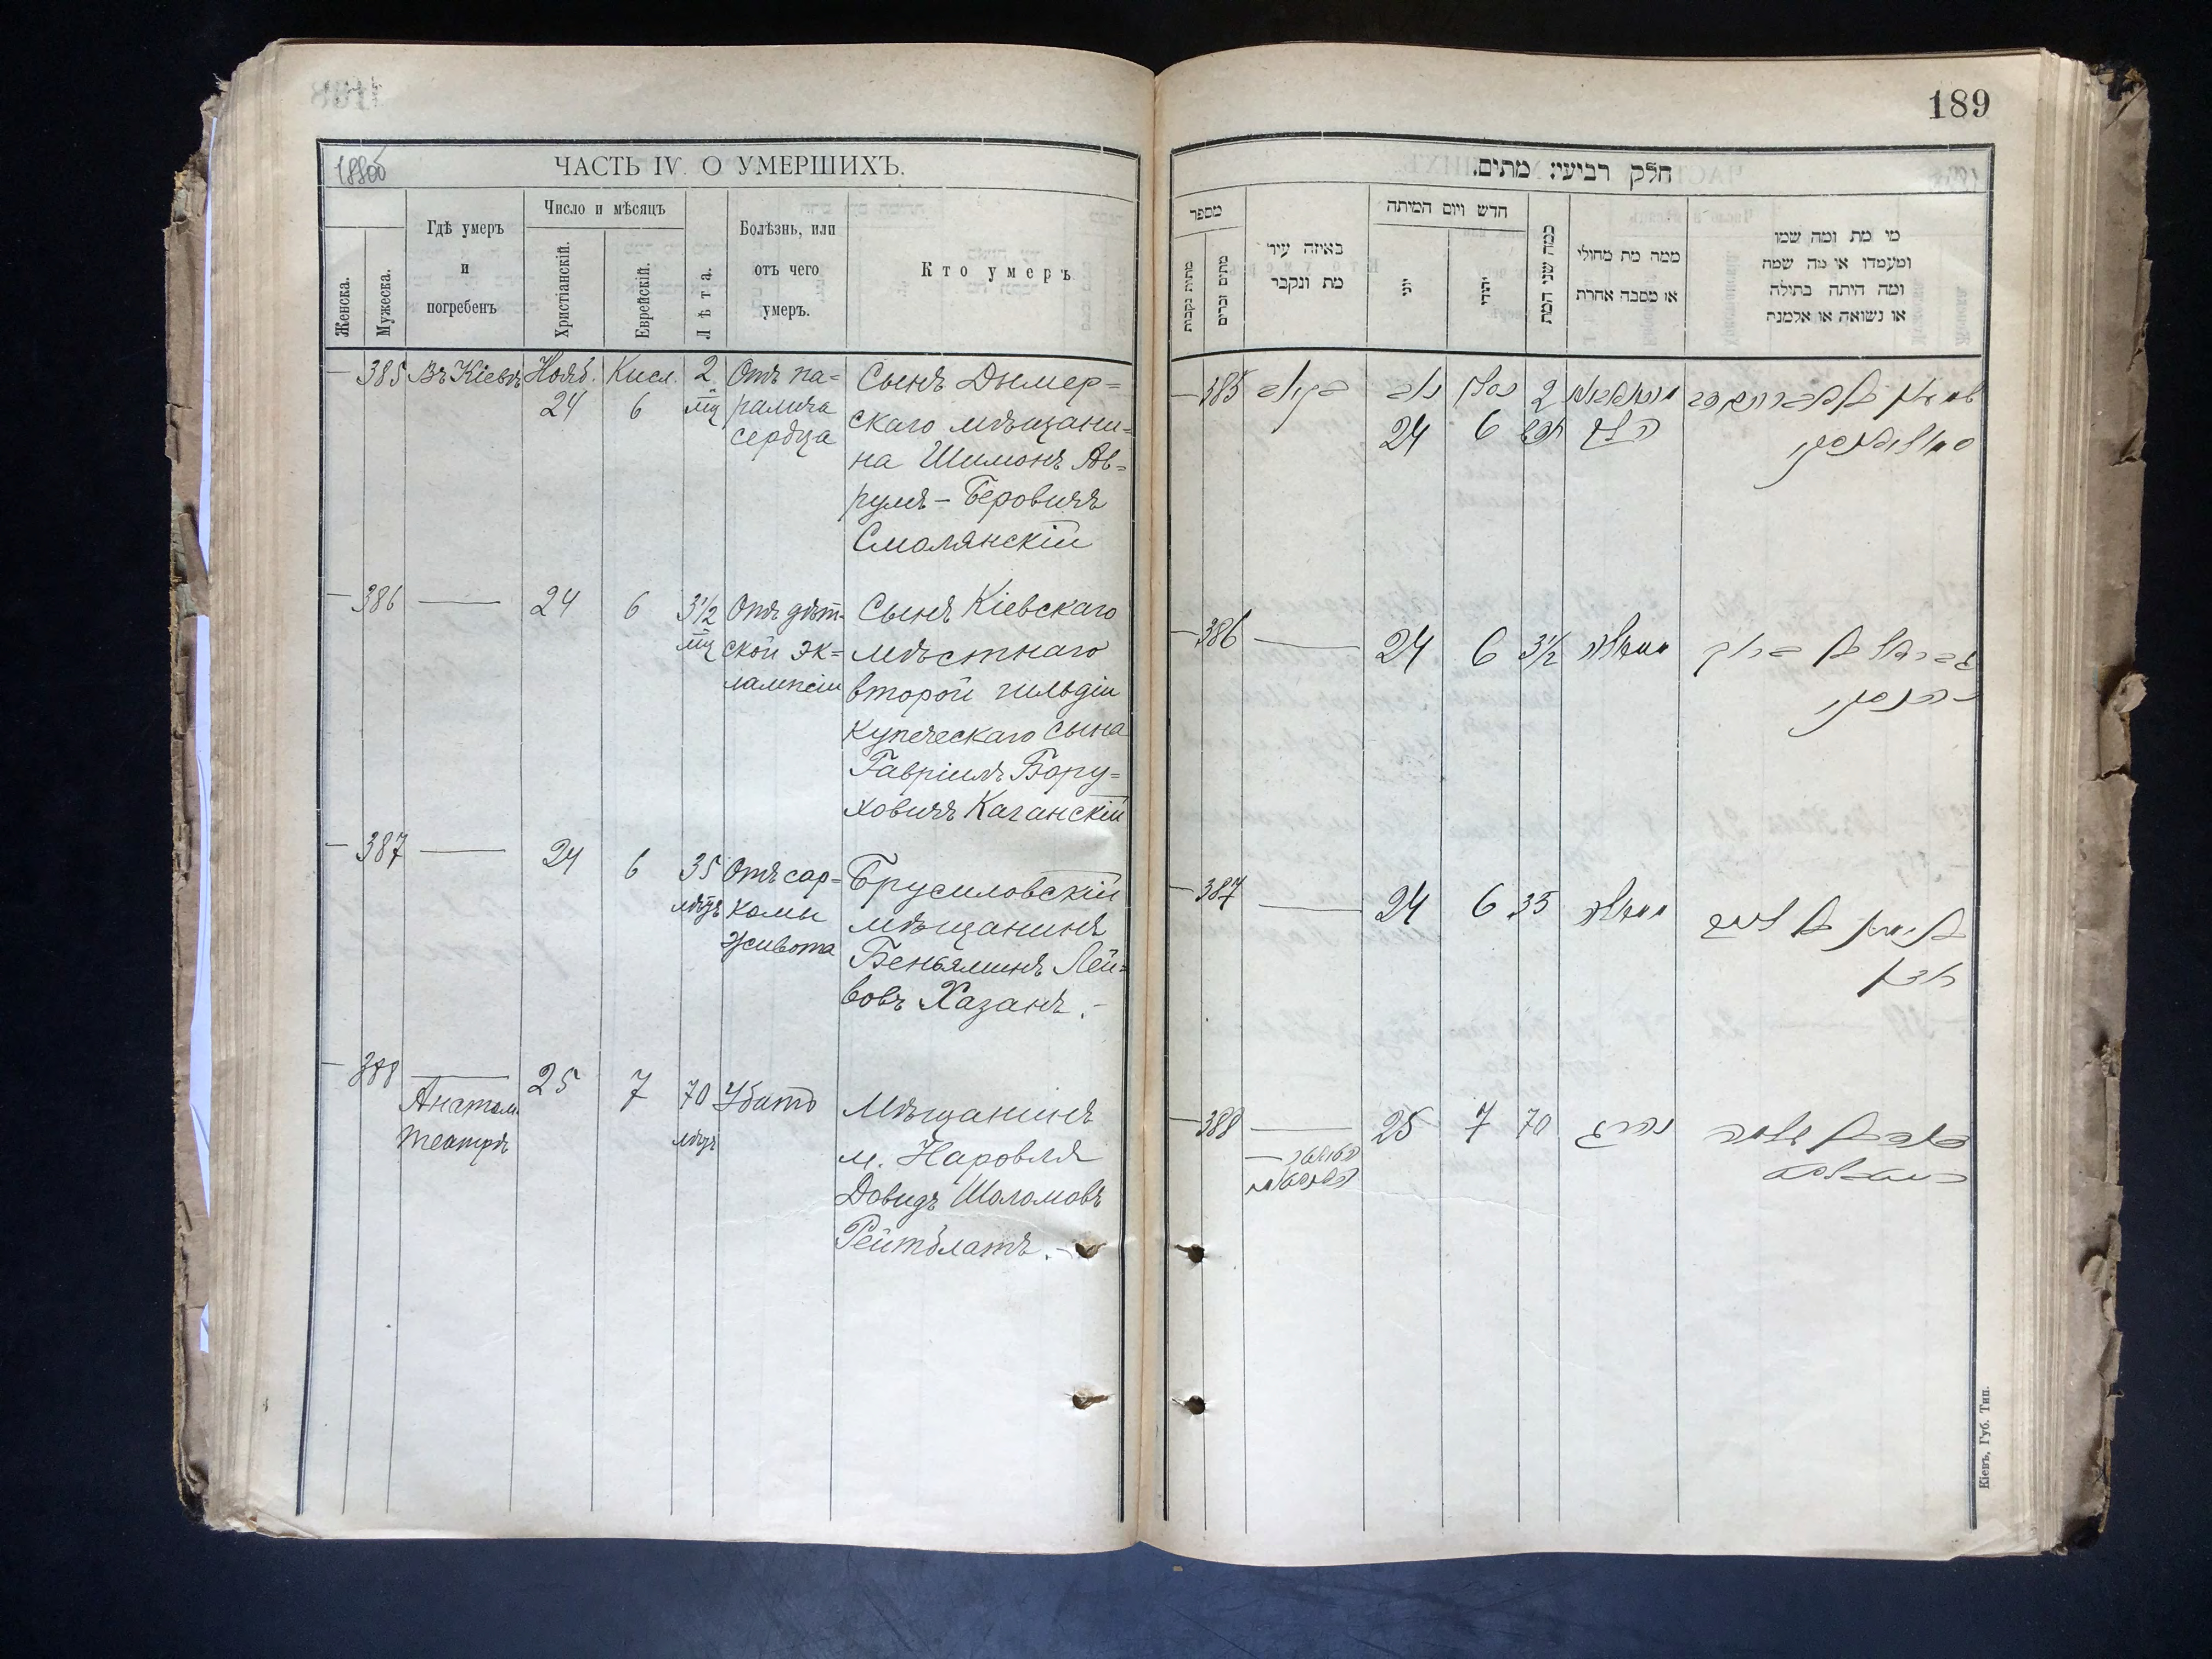 188об
ЧАСТЬ IV. О УМЕРШИХЪ.
Женска.
Мужеска.
Гдѣ умеръ
и
погребенъ
Число и мѣсяцъ
Христіанскій.
Еврейскій.
Лѣта.
Болѣзнь, или
отъ чего
умеръ.
Кто умеръ
— 385 Въ Кіевѣ Нояб. Кисл. 2 Отъ па= Сынъ Дымер=
24 6 мц ралича скаго мѣщани=
сердца на Шимонъ Ав=
румъ-Беровичъ
Смолянскій
— 386 — 24 6 3½ Отъ дѣт- Сынъ Кіевскаго
мц ской эк= мѣстнаго
лампсіи второй гильдіи
купеческаго сына
Гавріилъ Бору=
ховичъ Каганскій
— 387 — 24 6 35 Отъ сар= Брусиловскій
лѣтъ комы мѣщанинъ
живота Беньяминъ Лей=
вовъ Хазанъ.-
— 388 — 25 7 70 Убитъ Мѣщанинъ
Анатом. лѣтъ м. Наровля
театръ Довидъ Шоломовъ
Рейтблатъ.-
189
חלק רביעי: מתים.
מספר
מתות נקבות
מתים זכרים
באיזה עיר
מת ונקבר
חדש ויום המיתה
יוני
יהודי
כמה שני המת
ממה מת מחולי
או מסבה אחרת
מי מת ומה שמו
ומעמדו או מה שמה
ומה היתה בתולה
או נשואה או אלמנה
— 385
24 6 2
— 386 — 24 6 3½
— 387 — 24 6 35
חזן
— 388 — 25 7 70 נהרג
Кіевъ, Губ. Тип.